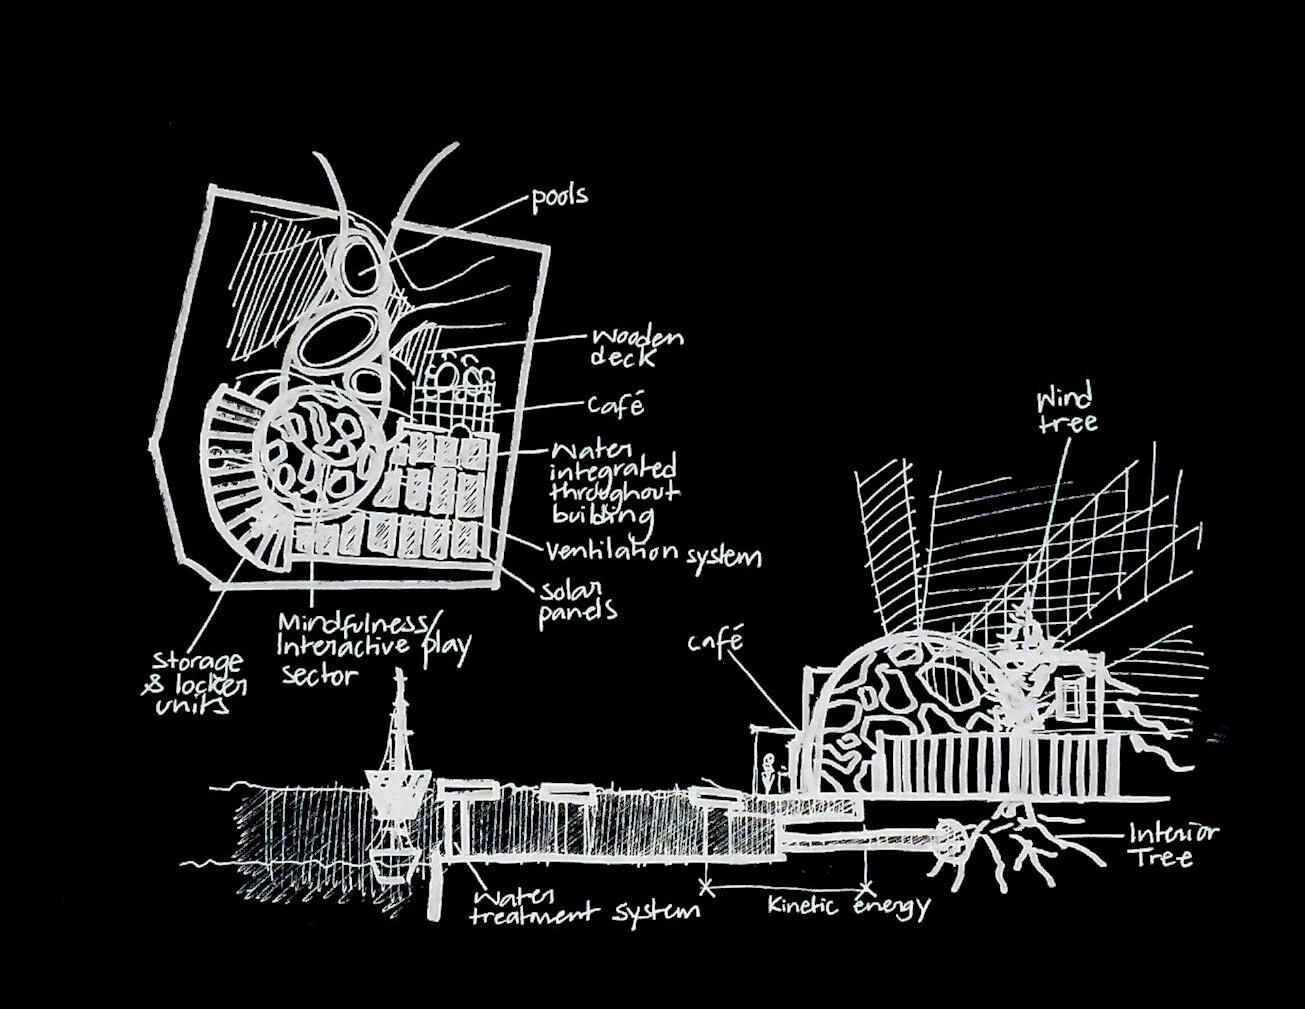 pools
Wooden
deck
Café
Water
integrated
throughout
building
Ventilation system
Solar
panels
Mindfulness/
Interactive play
sector
Storage
& locker
units
Wind
tree
café
Interior
Tree
Water
treatment system
Kinetic energy